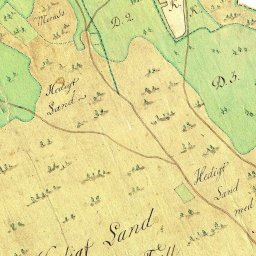 Morass
D. 2.
K.
K.
D. 3.
Hedigt
Sand
Hedigt
Sand
med
Hedigt Sand
Tall